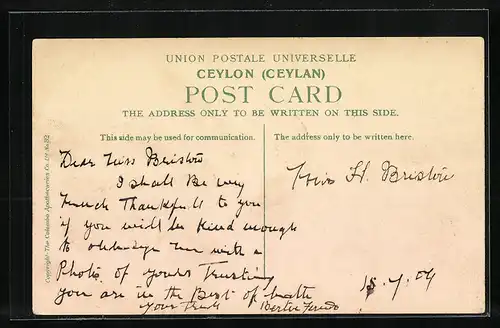 UNION POSTALE UNIVERSELLE
CEYLON (CEYLAN)
POST CARD
THE ADDRESS ONLY TO BE WRITTEN ON THIS SIDE.
This side may be used for communication.
The address only to be written here.
Copyright-The Colombo Apothecaries Co. Ltd
Dear Miss Bristow
I shall Be very
much Thankfull to you
if you will be kind enough
to me with a
Photo of yours Trusting
you are in the Best of health
Your Truly
Miss H. Bristow